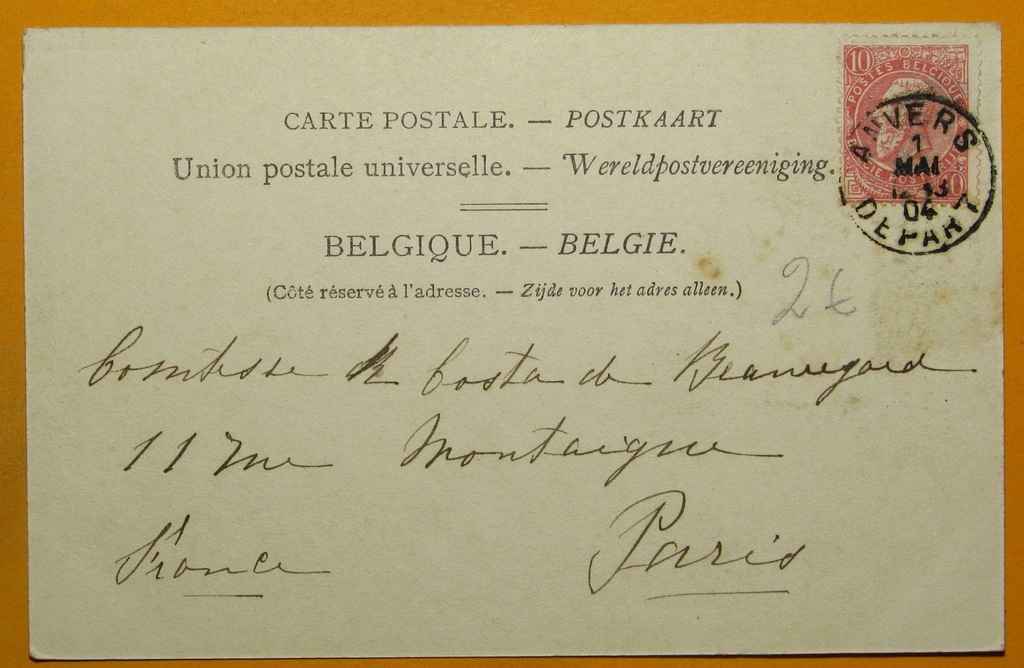 10 POSTES BELGIQUE
ANVERS
1
MAI
04
DEPART
CARTE POSTALE. — POSTKAART
Union postale universelle. — Wereldpostvereeniging.
BELGIQUE. — BELGIE.
(Côté réservé à l'adresse. — Zijde voor het adres alleen.)
2 €
Comtesse R Costa de Beauregard
11 rue Montaigne
France Paris